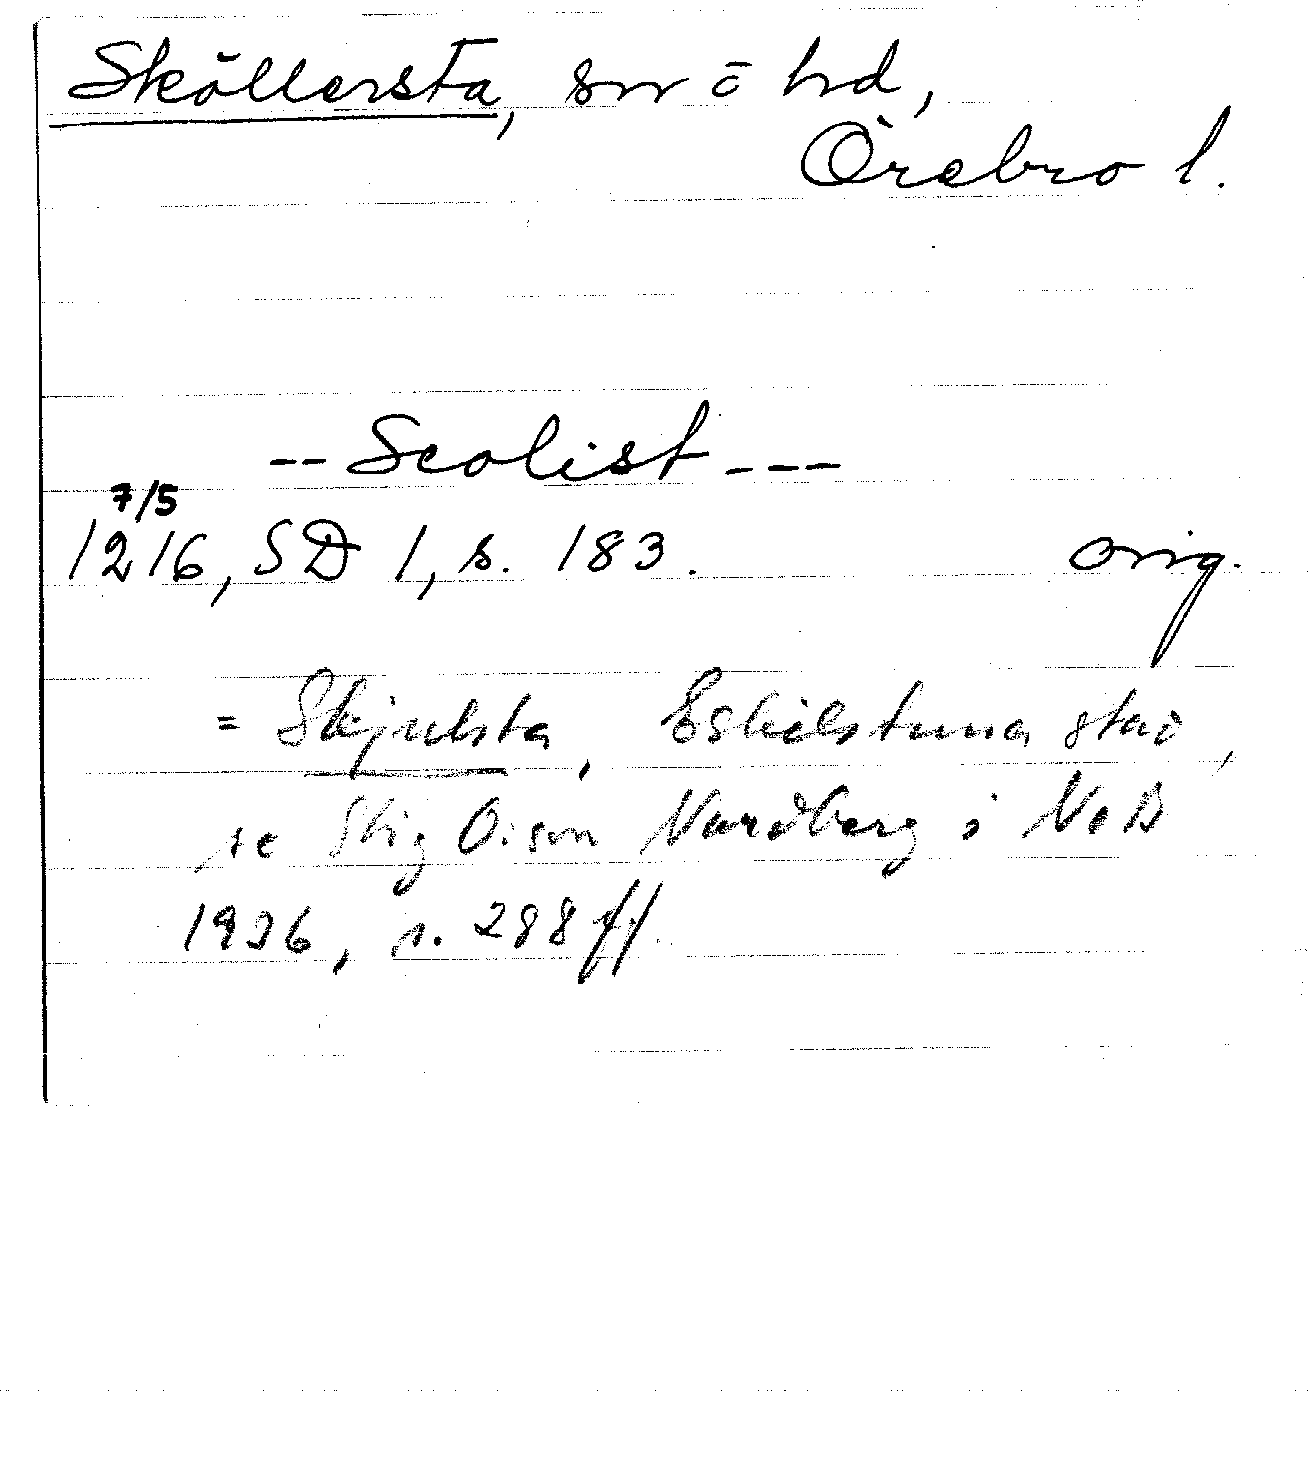 Sköllersta, sn o hd,
Örebro l.
-- Scolist ---
7/5
1216, SD 1, s. 183. orig.
= Skjulsta, Eskilstuna stad,
se Stig O:son Nordberg i NoB
1926, s. 288 ff.